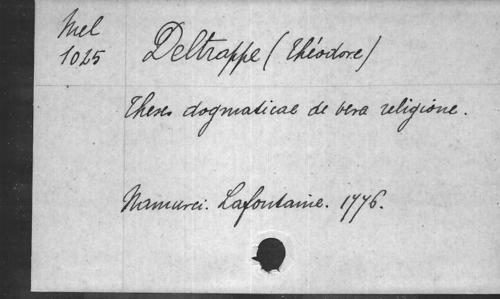 Mel
1025
Deltrappe (Théodore)
Theses dogmaticae de vera religione.
Namurci. Lafontaine. 1776.